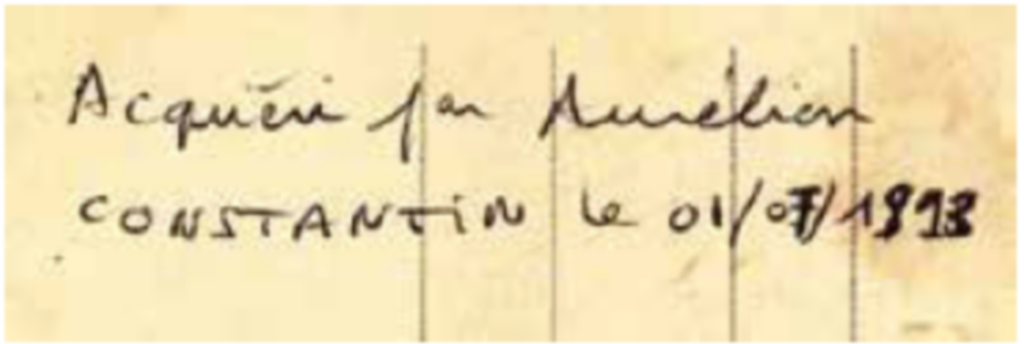 Acquéri par Aurélian
CONSTANTIN le 01/07/1993